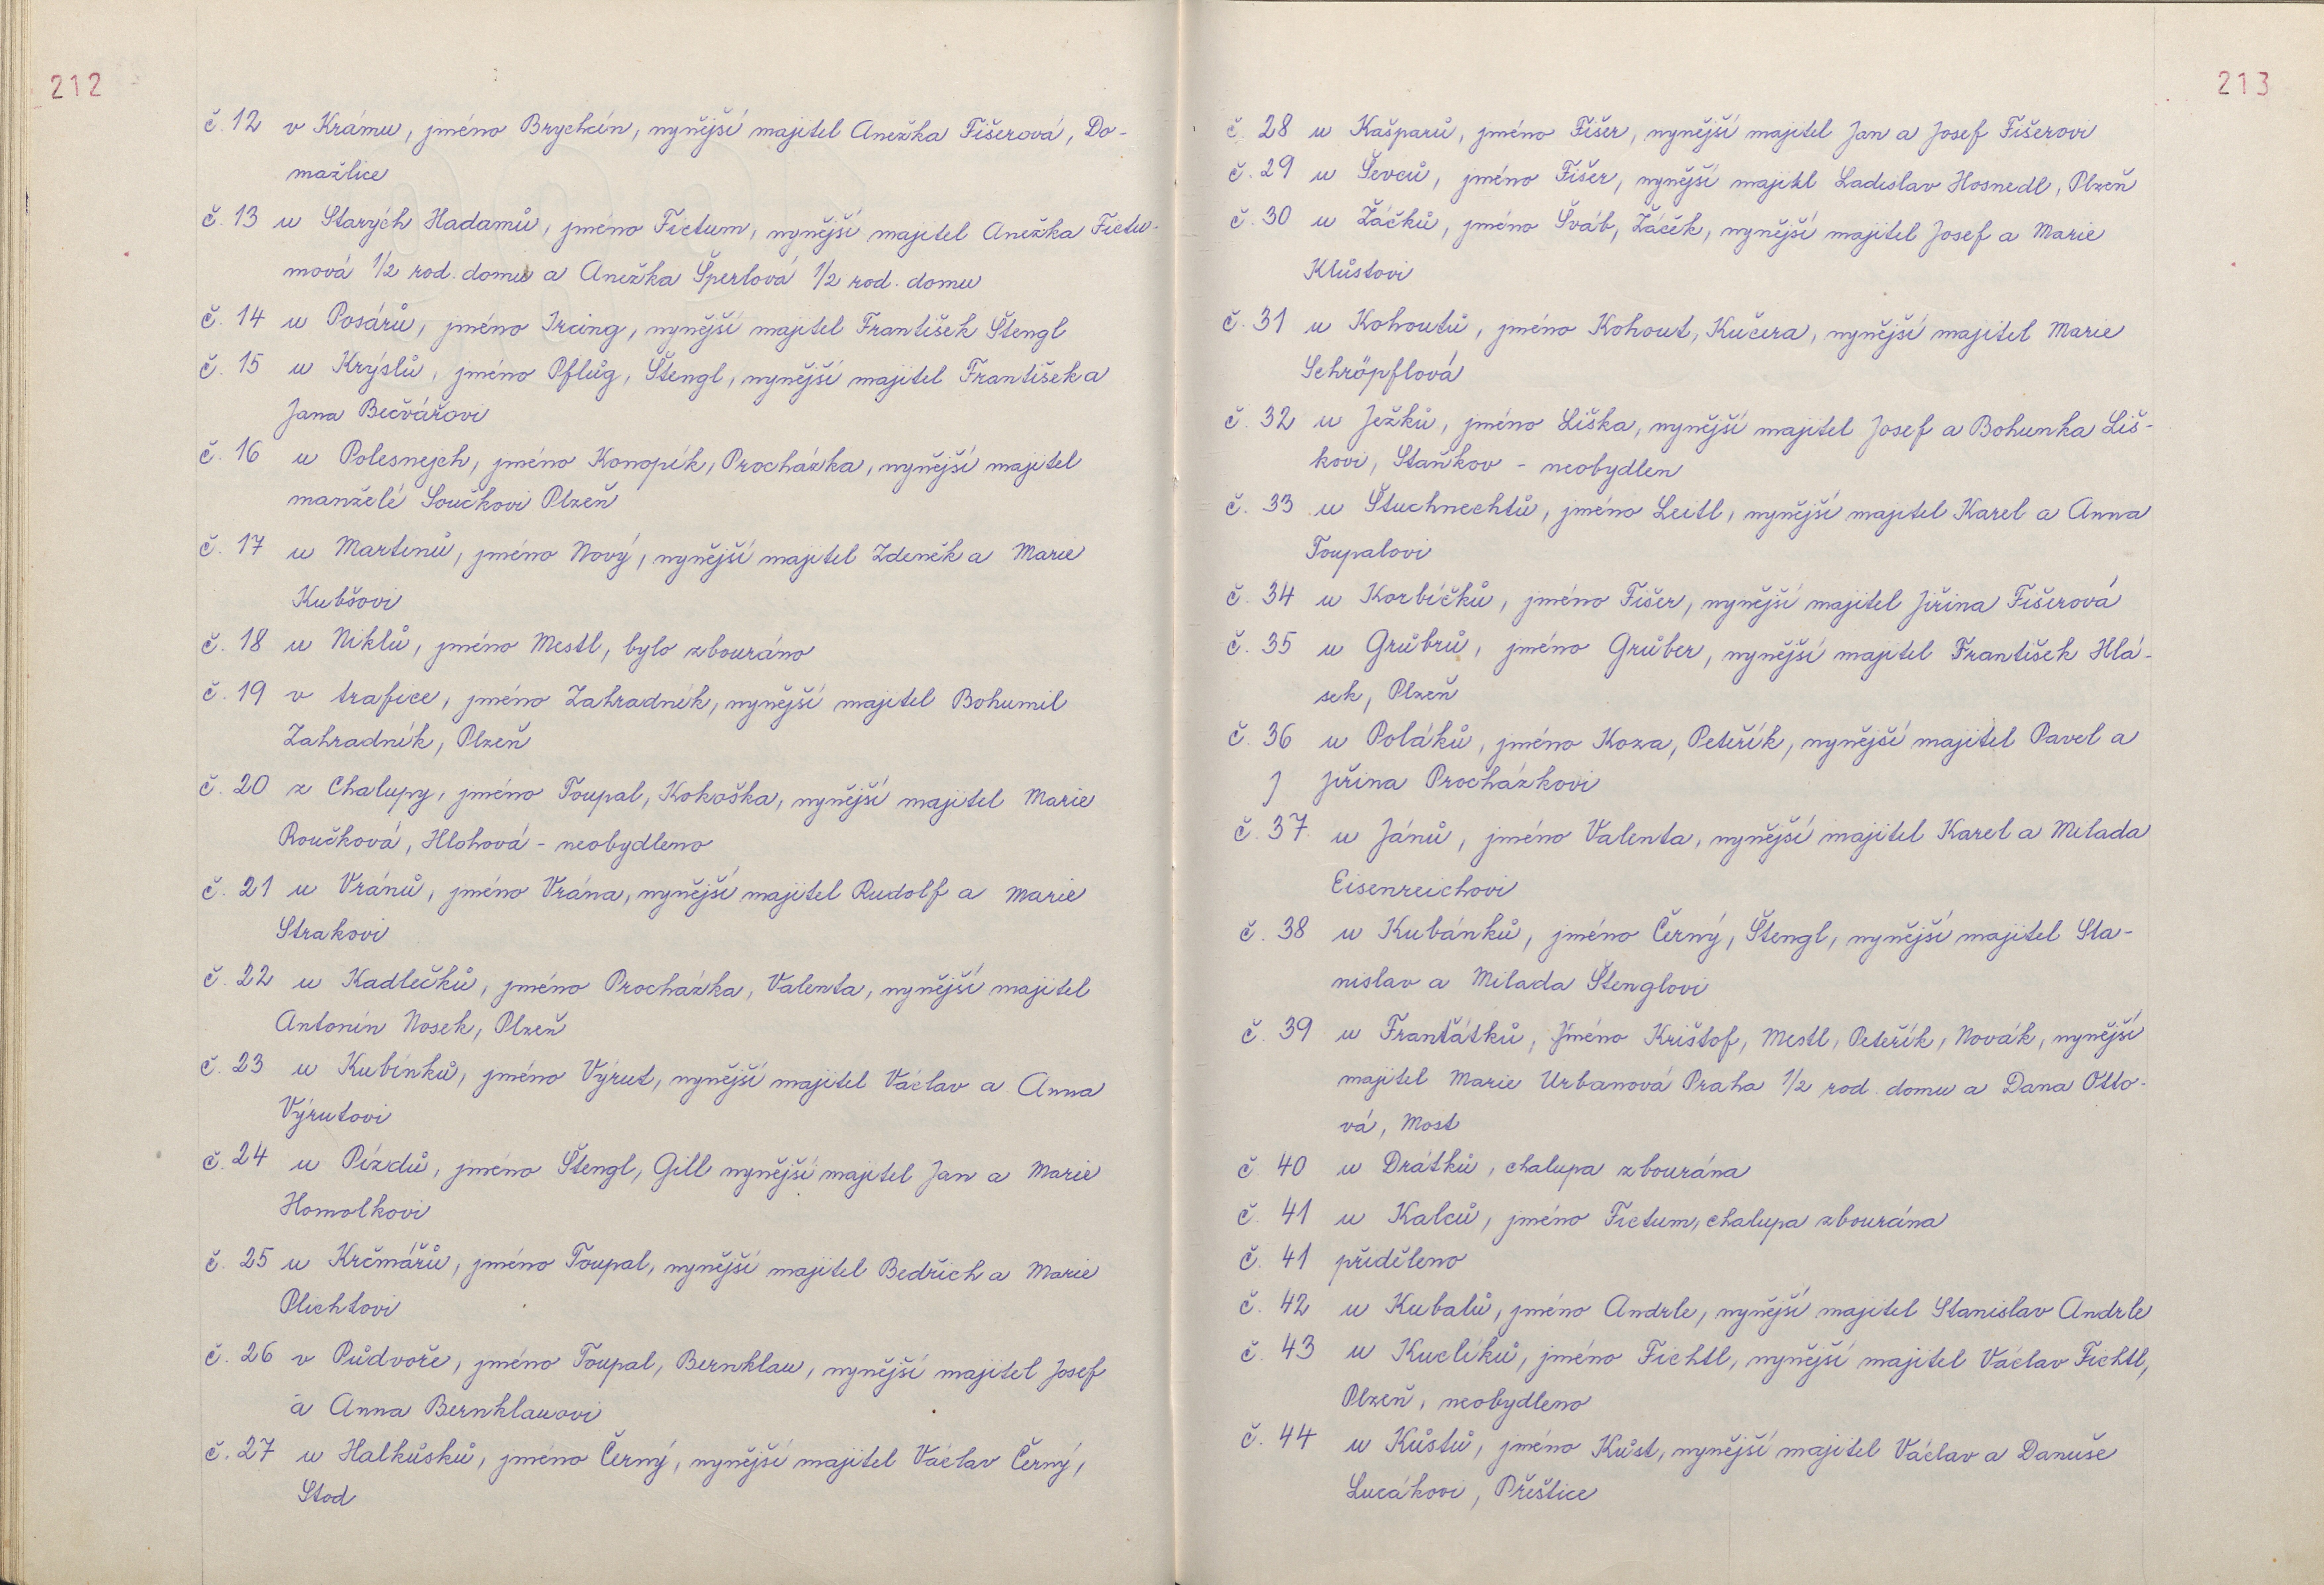 212
č. 12 v Krámu, jméno Brychcín, nynější majitel Anežka Fišerová, Do-
mažlice
č. 13 u Starých Hadamů, jméno Fictum, nynější majitel Anežka Fictu-
mová 1/2 rod. domu a Anežka Šperlová 1/2 rod. domu
č. 14 u Posárů, jméno Ircing, nynější majitel František Štengl
č. 15 u Krýslů, jméno Pflůg, Štengl, nynější majitel František a
Jana Bečvářovi
č. 16 u Polesnejch, jméno Konopík, Procházka, nynější majitel
manželé Součkovi Plzeň
č. 17 u Martinů, jméno Nový, nynější majitel Zdeněk a Marie
Kubšovi
č. 18 u Niklů, jméno Mestl, bylo zbouráno
č. 19 v trafice, jméno Zahradník, nynější majitel Bohumil
Zahradník, Plzeň
č. 20 z Chalupy, jméno Toupal, Kokoška, nynější majitel Marie
Roučková, Hlohová - neobydleno
č. 21 u Vránů, jméno Vrána, nynější majitel Rudolf a Marie
Strakovi
č. 22 u Kadlečků, jméno Procházka, Valenta, nynější majitel
Antonín Nosek, Plzeň
č. 23 u Kubínků, jméno Výrut, nynější majitel Václav a Anna
Výrutovi
č. 24 u Pízdů, jméno Štengl, Gill nynější majitel Jan a Marie
Homolkovi
č. 25 u Krčmářů, jméno Toupal, nynější majitel Bedřich a Marie
Plichtovi
č. 26 v Půdvoře, jméno Toupal, Bernklau, nynější majitel Josef
a Anna Bernklauovi
č. 27 u Halkůsků, jméno Černý, nynější majitel Václav Černý,
Stod
213
č. 28 u Kašparů, jméno Fišer, nynější majitel Jan a Josef Fišerovi
č. 29 u Ševců, jméno Fišer, nynější majitl Ladislav Hosnedl, Plzeň
č. 30 u Žáčků, jméno Šváb, Žáček, nynější majitel Josef a Marie
Klůstovi
č. 31 u Kohoutů, jméno Kohout, Kučera, nynější majitel Marie
Schröpflová
č. 32 u Ježků, jméno Liška, nynější majitel Josef a Bohunka Liš-
kovi, Staňkov - neobydlen
č. 33 u Štuchnechtů, jméno Leitl, nynější majitel Karel a Anna
Toupalovi
č. 34 u Korbíčků, jméno Fišer, nynější majitel Jiřina Fišerová
č. 35 u Grůbrů, jméno Grůber, nynější majitel František Hlá-
sek, Plzeň
č. 36 u Poláků, jméno Koza, Peteřík, nynější majitel Pavel a
J Jiřina Procházkovi
č. 37 u Jánů, jméno Valenta, nynější majitel Karel a Milada
Eisenreichovi
č. 38 u Kubánků, jméno Černý, Štengl, nynější majitel Sta-
nislav a Milada Štenglovi
č. 39 u Franťátků, Jméno Krištof, Mestl, Peteřík, Novák, nynější
majitel Marie Urbanová Praha 1/2 rod. domu a Dana Otto-
vá, Most
č. 40 u Drátků, chalupa zbourána
č. 41 u Kalců, jméno Fictum, chalupa zbourána
č. 41 přiděleno
č. 42 u Kubalů, jméno Andrle, nynější majitel Stanislav Andrle
č. 43 u Kuclíků, jméno Fichtl, nynější majitel Václav Fichtl,
Plzeň, neobydleno
č. 44 u Kůstů, jméno Kůst, nynější majitel Václav a Danuše
Lucákovi, Přeštice